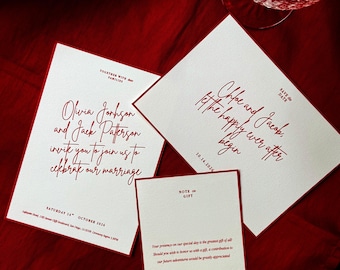 TOGETHER WITH
FAMILIES
Olivia Jonhson
and Jack Patterson
invite you to join us to
celebrate our marriage
SATURDAY 10TH OCTOBER 2026
SAVE the
DATE
Chloe and Jacob,
let the happily ever after
begin
10.10.2026
NOTE on
GIFT
Your presence on our special day is the greatest gift of all
Should you wish to bless us with a gift, a contribution to
our future adventures would be greatly appreciated